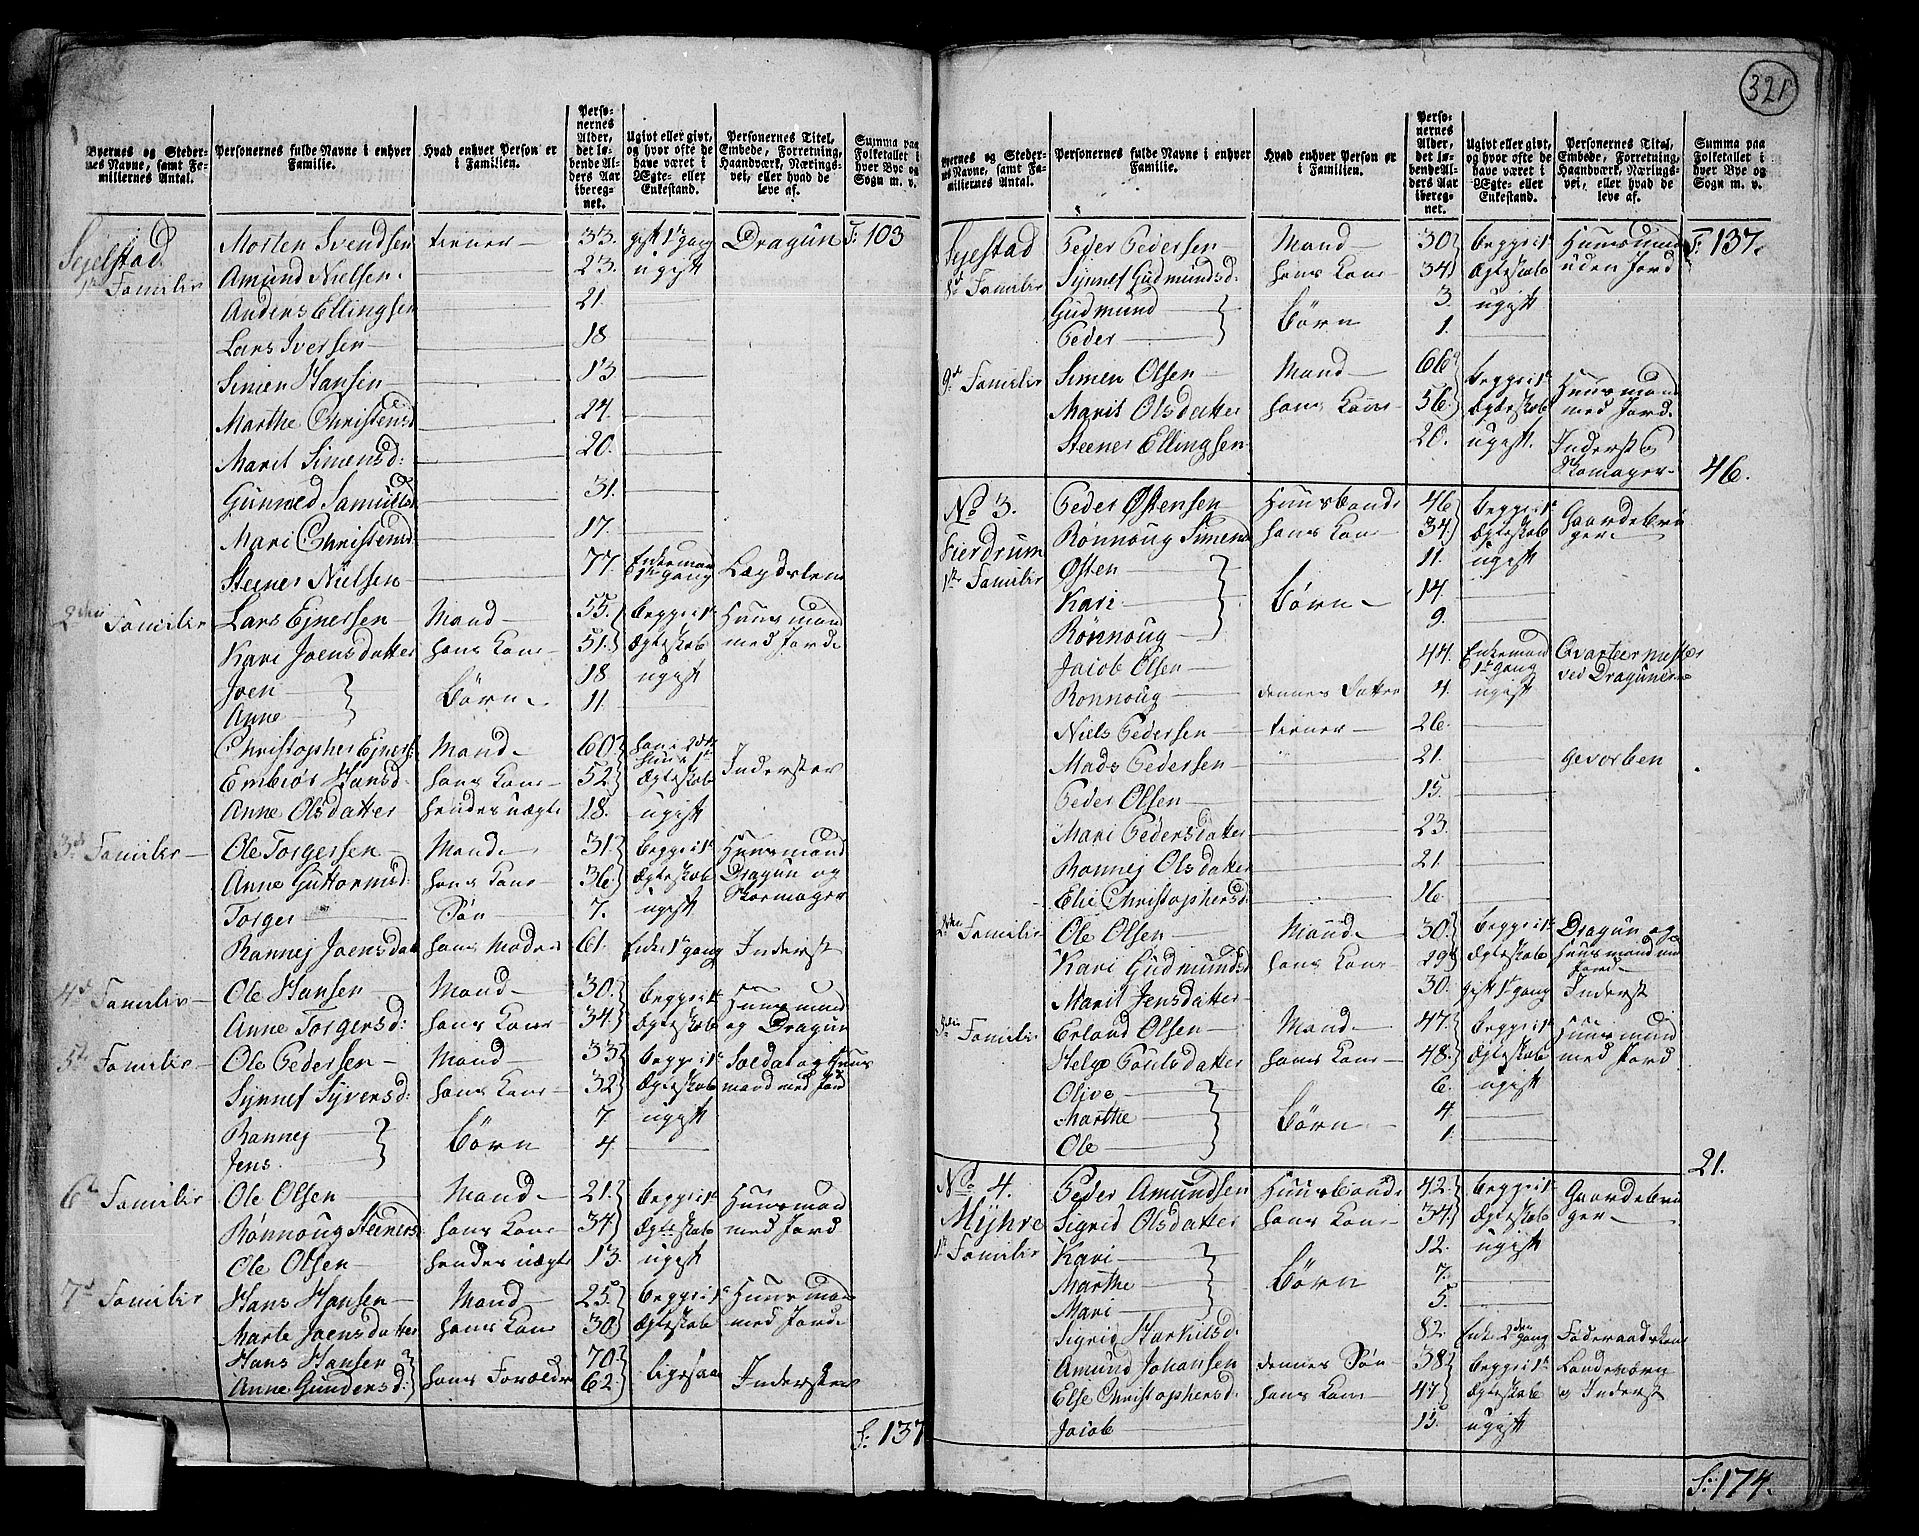 321
Byernes og Steder-
nes Navne, samt Fa-
miliernes Antal.
Personernes fulde Navne i enhver
Familie.
Hvad enhver Person er
i Familien.
Perso-
nernes
Alder,
det lø-
bende Al-
ders Aar
iberegn-
net.
Ugivt eller givt,
og hvor ofte de
have været i
Ægte- eller
Enkestand.
Personernes Titel,
Embede, Forretning,
Haandværk, Nærings-
vei, eller hvad de
leve af.
Summa paa
Folketallet i
hver Bye og
Sogn m. v.
Sejelstad Morten Svendsen tiener 33. gift 1te gang Dragun T: 103
1te Familie Amund Nielsen 23. ugift
Anders Ellingsen 21.
Lars Iversen 18
Simen Hansen 13
Marthe Christensd 24.
Marit Simensd: 20.
Gunned Samuelsd 31.
Mari Christensd 17.
Steener Nielsen 77 Enkemand 1te gang Lægdslem
2den Familie Lars Ejnersen Mand 55. begge i 1te Huusmand
Kari Joensdatter hans Kone 51. Ægteskab med Jord
Joen 18 ugift
Anne Børn 11.
Christopher Ejners: Mand 60. han i 2det hun i 1te
Embiør Hansd: hans Kone 52 Ægteskab Inderster
Anne Olsdatter hendes uægte 18. ugift
3die Familie Ole Torgersen Mand 31. begge i 1te Huusmand
Anne Guttormsd: hans Kone 36. Ægteskab Dragun og
Torger Søn 7. ugift Skomager
Rannej Joensdat hans Moder 61. Enke 1te gang Inderst
4de Familie Ole Hansen Mand 30. begge i 1te Huusmand
Anne Torgersd: hans Kone 34. Ægteskab og Dragun
5te Familie Ole Pedersen Mand 33 begge i 1te Soldat og Huus
Synnef Syversd: hans Kone 32 Ægteskab mand med Jord
Rannej 7 ugift
Jens Børn 4
6te Familie Ole Olsen Mand 21. begge i 1te Huusmand
Rønnoug Steenersd hans Kone 34. Ægteskab med Jord
Ole Olsen hendes uægte 13. ugift
7de Familie Hans Hansen Mand 25. begge i 1te Huusman
Marte Joensdatter hans Kone 30. Ægteskab med Jord
Hans Hansen 70
Anne Gundersd: hans Forældre 62. ligesaa Inderster
S: 137
Byernes og Steder-
nes Navne, samt Fa-
miliernes Antal.
Personernes fulde Navne i enhver
Familie.
Hvad enhver Person er
i Familien.
Perso-
nernes
Alder,
det lø-
bende Al-
ders Aar
iberegn-
net.
Ugivt eller givt,
og hvor ofte de
have været i
Ægte- eller
Enkestand.
Personernes Titel,
Embede, Forretning,
Haandværk, Nærings-
vei, eller hvad de
leve af.
Summa paa
Folketallet i
hver Bye og
Sogn m. v.
Sejestad Peder Pedersen Mand 30 begge i 1te Huusmand T: 137.
8de Familie Synnef Gudmundsd. hans Kone 34 Ægteskab uden Jord
Gudmund 3. ugift
Peder Børn 1.
9de Familie Simen Olsen Mand 66 begge i 1te Huusmand
Marit Olsdatter hans Kone 56. Ægteskab med Jord.
Steener Ellingsen 20. ugift. Inderst og
Skomager 46.
No 3. Peder Østensen Huusbonde 46 begge i 1te Gaardebru
Fierdrum Rønnoug Simensd hans Kone 34 Ægteskab ger
1te Familie Østen 11. ugift
Kari Børn 14.
Rønnoug 9.
Jacob Olsen 44. Enkemand 1te gang Qvarteermester
Ronnoug dennes Datter 4. ugift ved Dragunerne
Niels Pedersen tiener 26.
Mads Pedersen 21. gevorben
Peder Olsen 15.
Mari Pedersdatter 23.
Rannej Olsdatter 21.
Elie Christophersd 16.
2den Familie Ole Olsen Mand 30. begge i 1te Dragun og
Kari Gudmundsd hans Kone 29 Ægteskab Huusmand med
Jord
Marit Jensdatter 30. gift 1te gang Inderst
3die Familie Erland Olsen Mand 47. begge i 1te Huusmand
Helge Poulsdatter hans Kone 48. Ægteskab med Jord
Olive 6. ugift
Marthe Børn 4.
Ole 1.
21.
No 4. Peder Amundsen Huusbonde 42. begge i 1te Gaardebru
Myhre Sigrid Olsdatter hans Kone 34. Ægteskab ger
1te Familie Kari 12. ugift
Marthe Børn 7.
Mari 5.
Sigrid Harkilsd. 82. Enke 2den gang Føderaadskone
Amund Johansen dennes Søn 38 begge i 1te Landeværn
Else Christophersd. hans Kone 47 Ægteskab og Inderst
Jacob 15. ugift
S: 174.